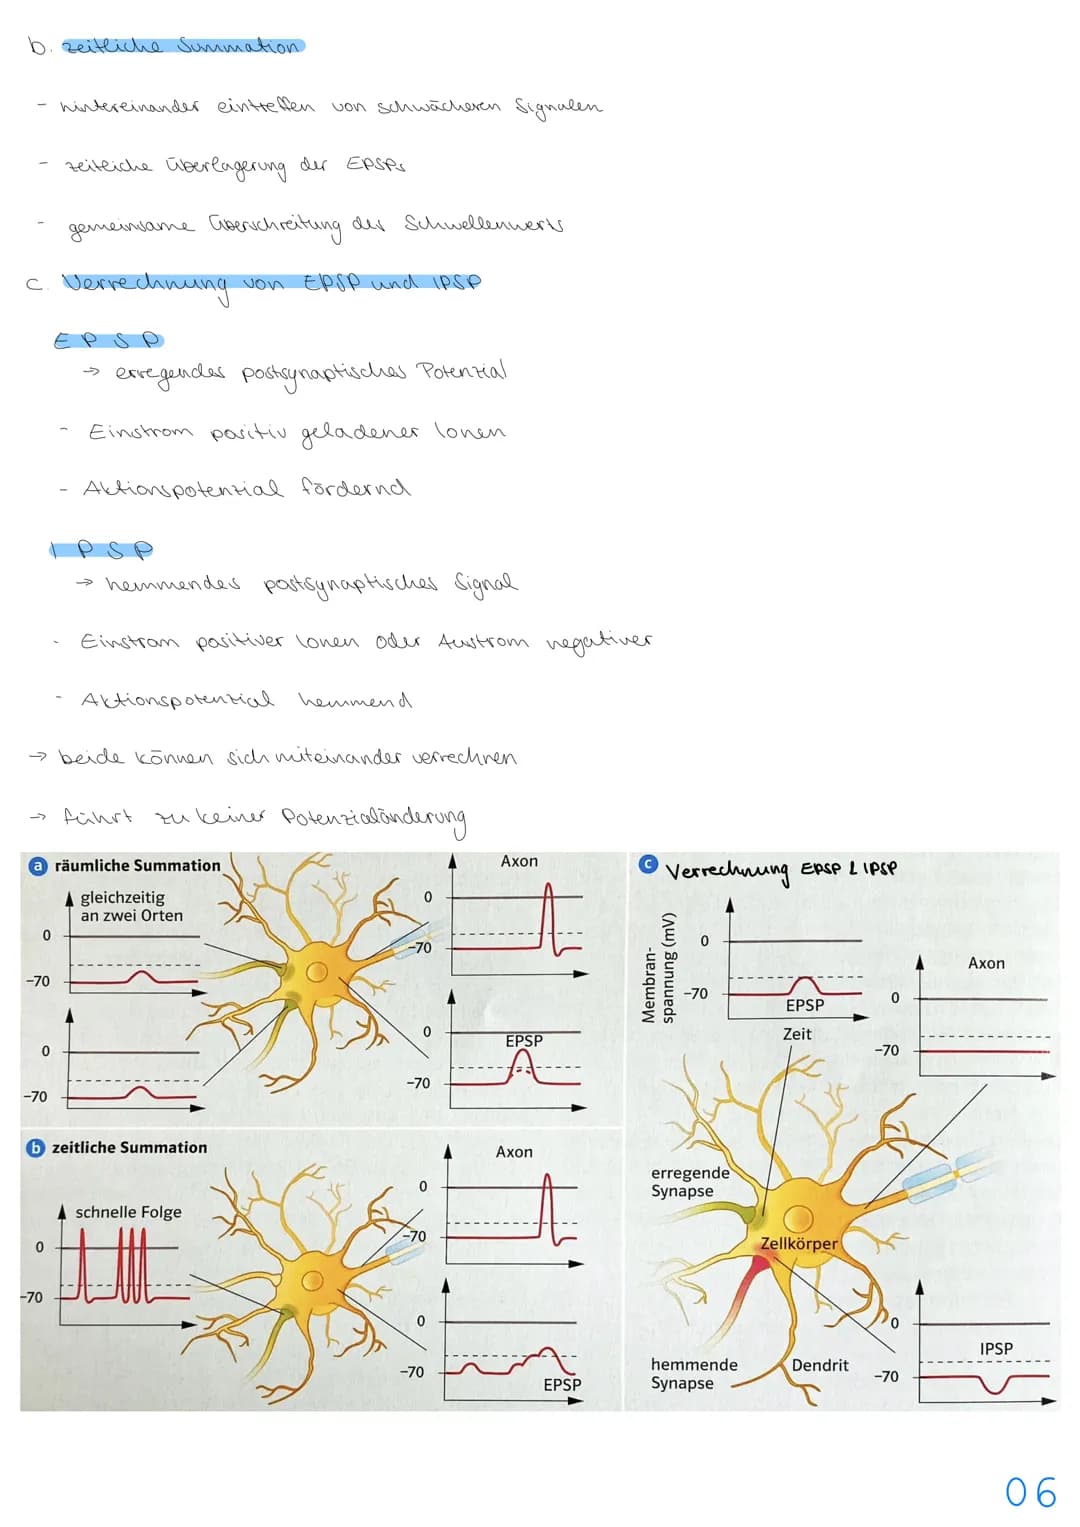 b. zeitliche Summation
- hintereinander eintreffen von schwächeren Signalen
- zeitliche Überlagerung der EPSPs
- gemeinsame Überschreitung des Schwellenwerts
c. Verrechnung von EPSP und IPSP
EPSP
→ erregendes postsynaptisches Potenzial
- Einstrom positiv geladener Ionen
- Aktionspotenzial fördernd
IPSP
→ hemmendes postsynaptisches Signal
- Einstrom positiver Ionen oder Austrom negativer
- Aktionspotenzial hemmend
→ beide können sich miteinander verrechnen
→ führt zu keiner Potenzialänderung
a räumliche Summation
gleichzeitig
an zwei Orten
0
-70
0
-70
Axon
0
-70
0
EPSP
-70
b zeitliche Summation
schnelle Folge
0
-70
Axon
0
-70
0
-70
EPSP
c Verrechnung EPSP & IPSP
Membran-
spannung (mV)
0
-70
EPSP
Zeit
Axon
0
-70
erregende
Synapse
Zellkörper
hemmende
Synapse
Dendrit
0
IPSP
-70
06